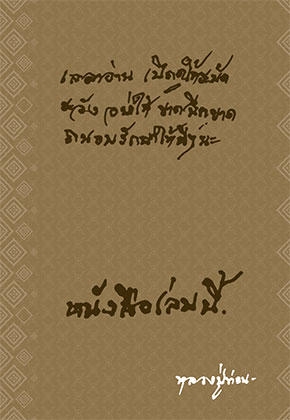 เวลาอ่าน เปิดดูให้ระมัด
ระวัง อย่าให้ ขาดฉีกขาด
ถนอมรักษาให้ดีๆ นะ
หนังสือเล่มนี้.
หลวงปู่ท่อน